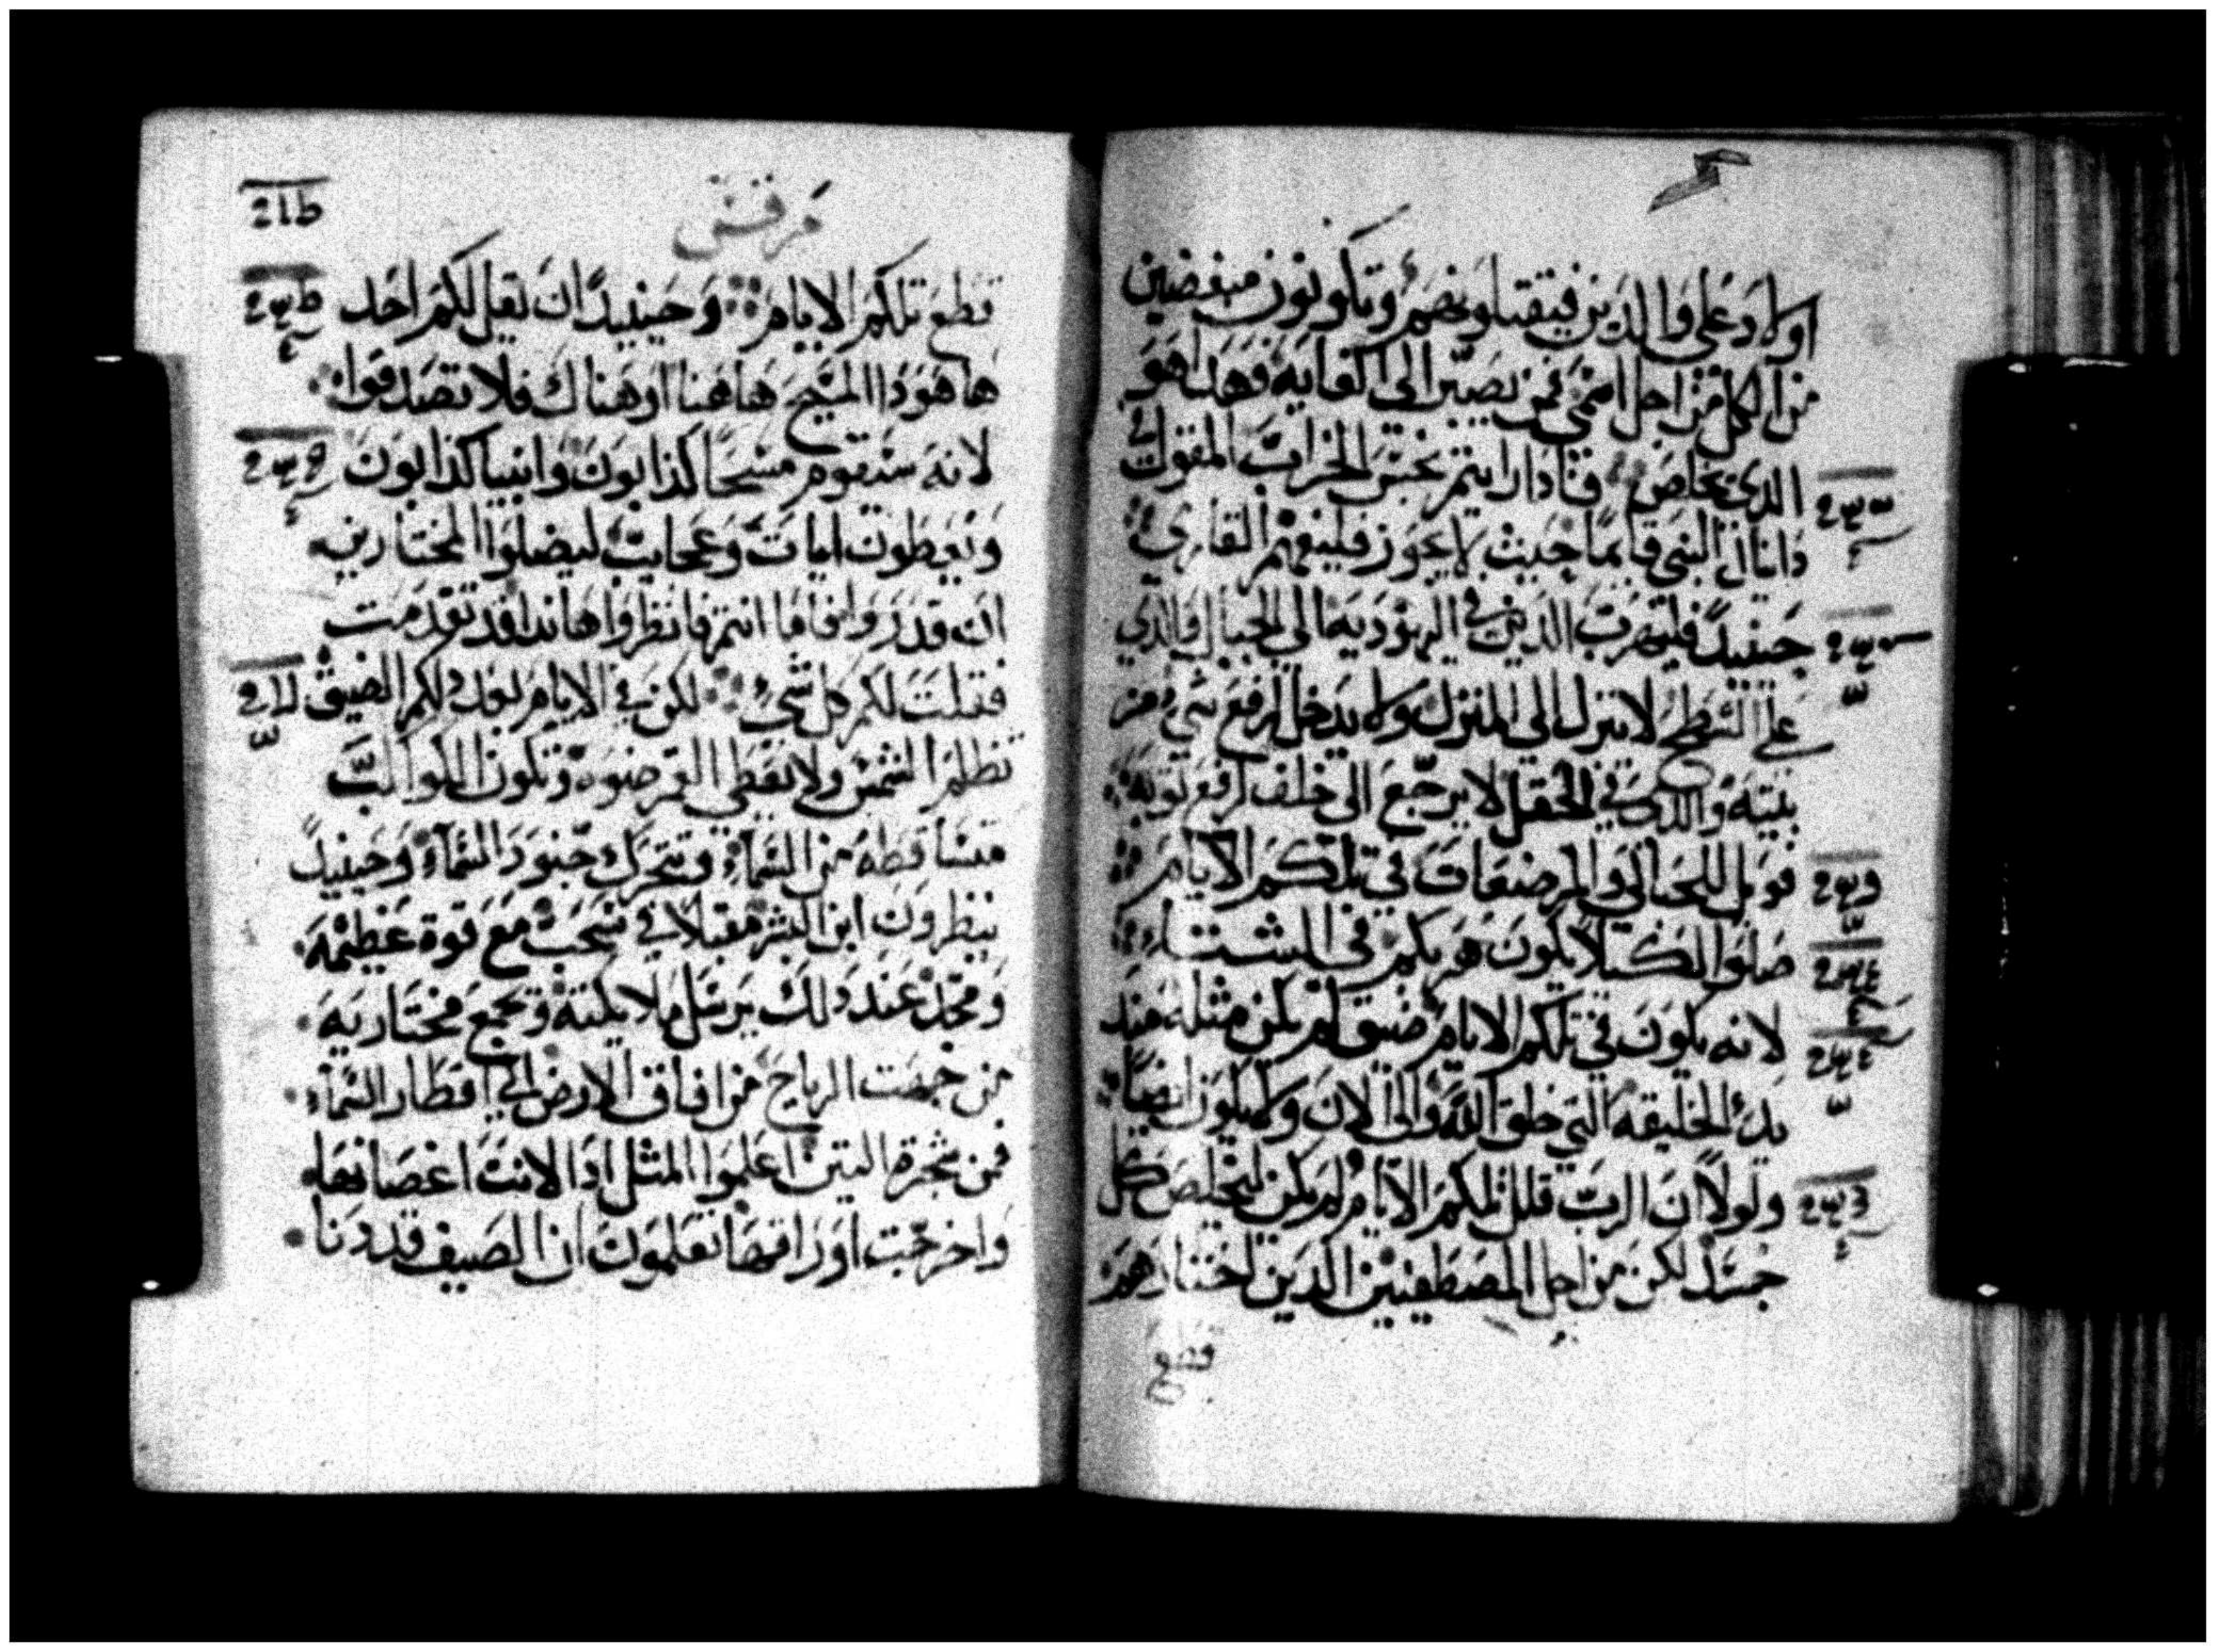 اولاد على والدين فيقتلونهم وتكونون مبغضين
من الكل من اجل اسمي فمن يصبر الى الغايه فهذا هو
الذي يخلص فاذا رايتم نجس الخراب المقول في
دانيال النبي قايمًا حيث لا يجوز فليفهم القاري
حينيدً فليهرب الذين في اليهوديه الى الجبال والذي
على السطح لا ينزل الى المنزل ولا يدخل ليرفع شي من
بيته والذي في الحقل لا يرجع الى خلف ليرفع ثوبه
فويل للحبالى والمرضعات في تلكم الايام
صلوا لكيلا يكون هربكم في الشتاء
لانه يكون في تلكم الايام ضيق لم يكن مثله منذ
بدء الخليقه التي خلق الله والى الان ولا يكون ايضًا
ولولا ان الرب قلل تلكم الايام لم يكن ليخلص كل
جسد لكن من اجل المصطفيين الدين اختارهم
قطع
مرقس
قطع تلكم الايام وحينيدً ان يقل لكم احد
ها هودا المسيح هاهنا او هناك فلا تصدقوا
لانه سيقوم مسحا كذابون وانبيا كذابون
ويعطون ايات وعجايب ليضلوا المختارين
ان قدروا فاما انتم فانظروا هاندا قد تقدمت
فقلت لكم كل شي لكن في الايام بعد دلكم الضيق
تظلم الشمس ولا يعطي القمر ضوه وتكون الكواكب
متساقطه من السماء وتتحرك جنود السماء وحينيدً
ينظرون ابن البشر مقبلا في سحب مع قوة عظيمه
ومجد عند دلك يرسل ملايكته وتجمع مختاريه
من جهت الرياح من افاق الارض الى اقطار السماء
فمن شجرة التين اعلموا المثل اذا لانت اغصانها
واخرجت اوراقها تعلمون ان الصيف قد دنا